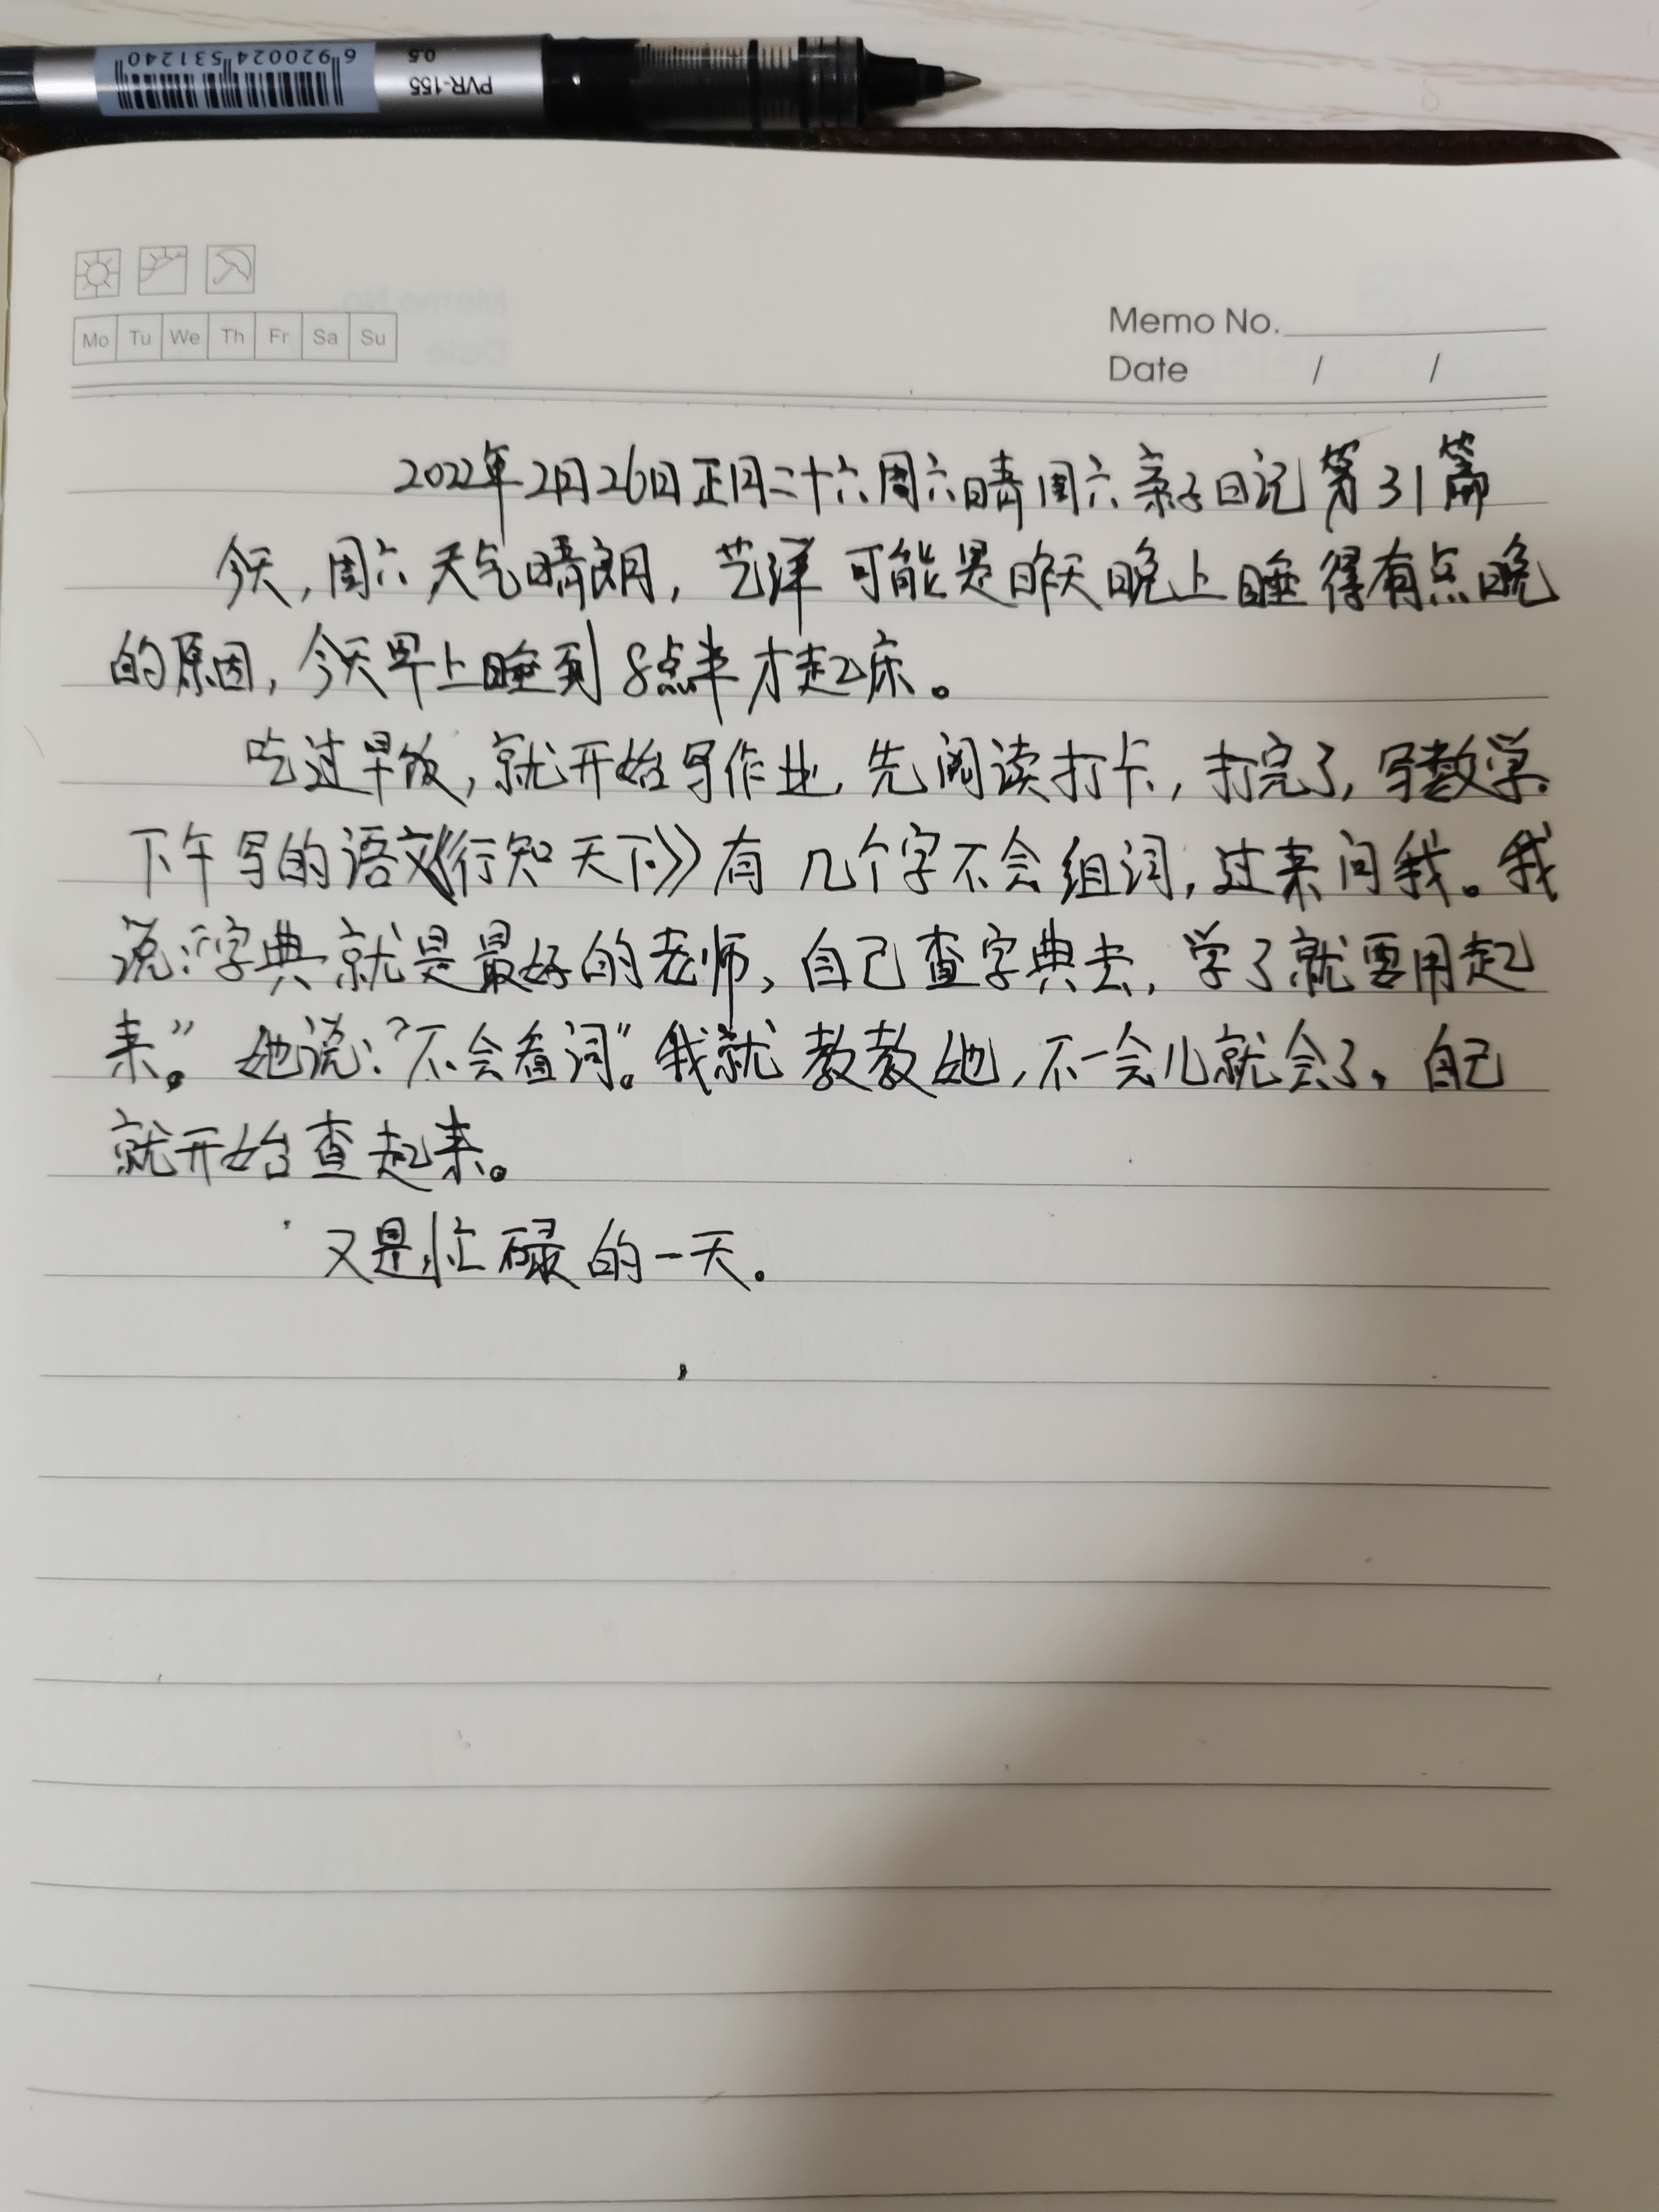 6 920024 531240
PVR-155
0.5
Memo No.
Mo Tu We Th Fr Sa Su
Date / /
2022年2月26日正月二十六周六晴周六亲子日记第31篇
今天,周六天气晴朗,艺洋可能是昨天晚上睡得有点晚
的原因,今天早上睡到8点半才起床。
吃过早饭,就开始写作业,先阅读打卡,打完了,写数学.
下午写的语文《行知天下》有几个字不会组词,过来问我。我
说:“字典就是最好的老师,自己查字典去,学了就要用起
来。”她说:“不会查词”。我就教教她,不一会儿就会了,自己
就开始查起来。
又是忙碌的一天。